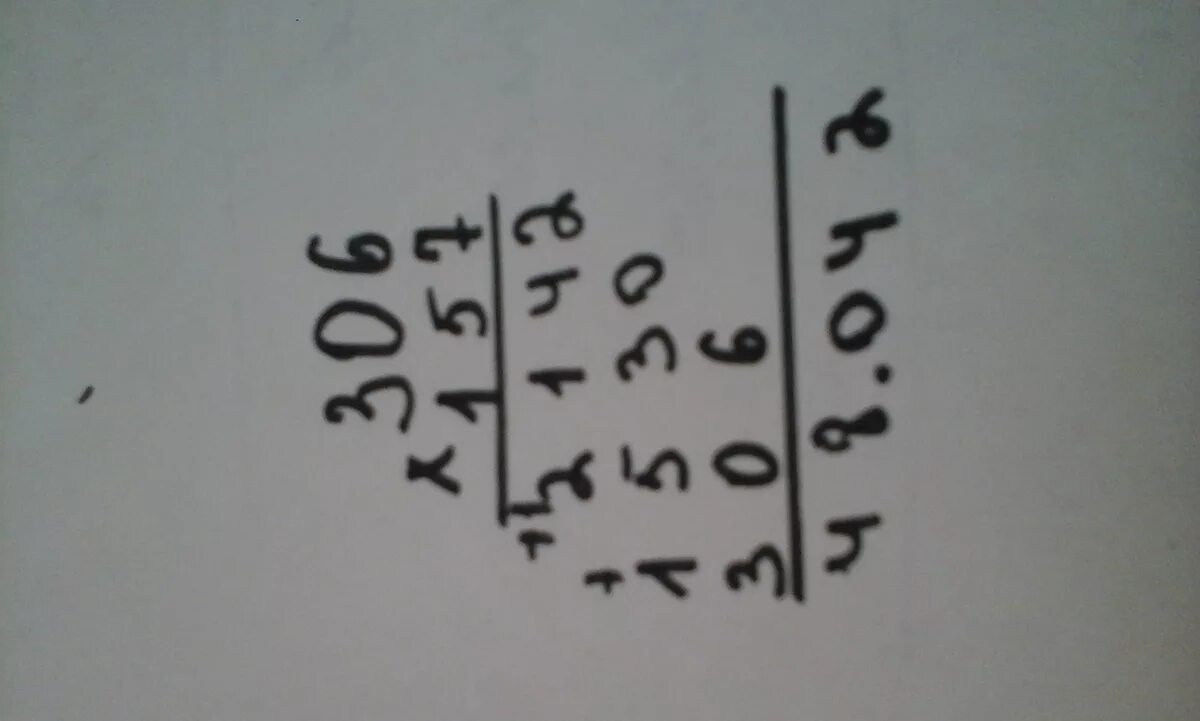 306
x 157
+ 2142
+ 1530
306
48.042